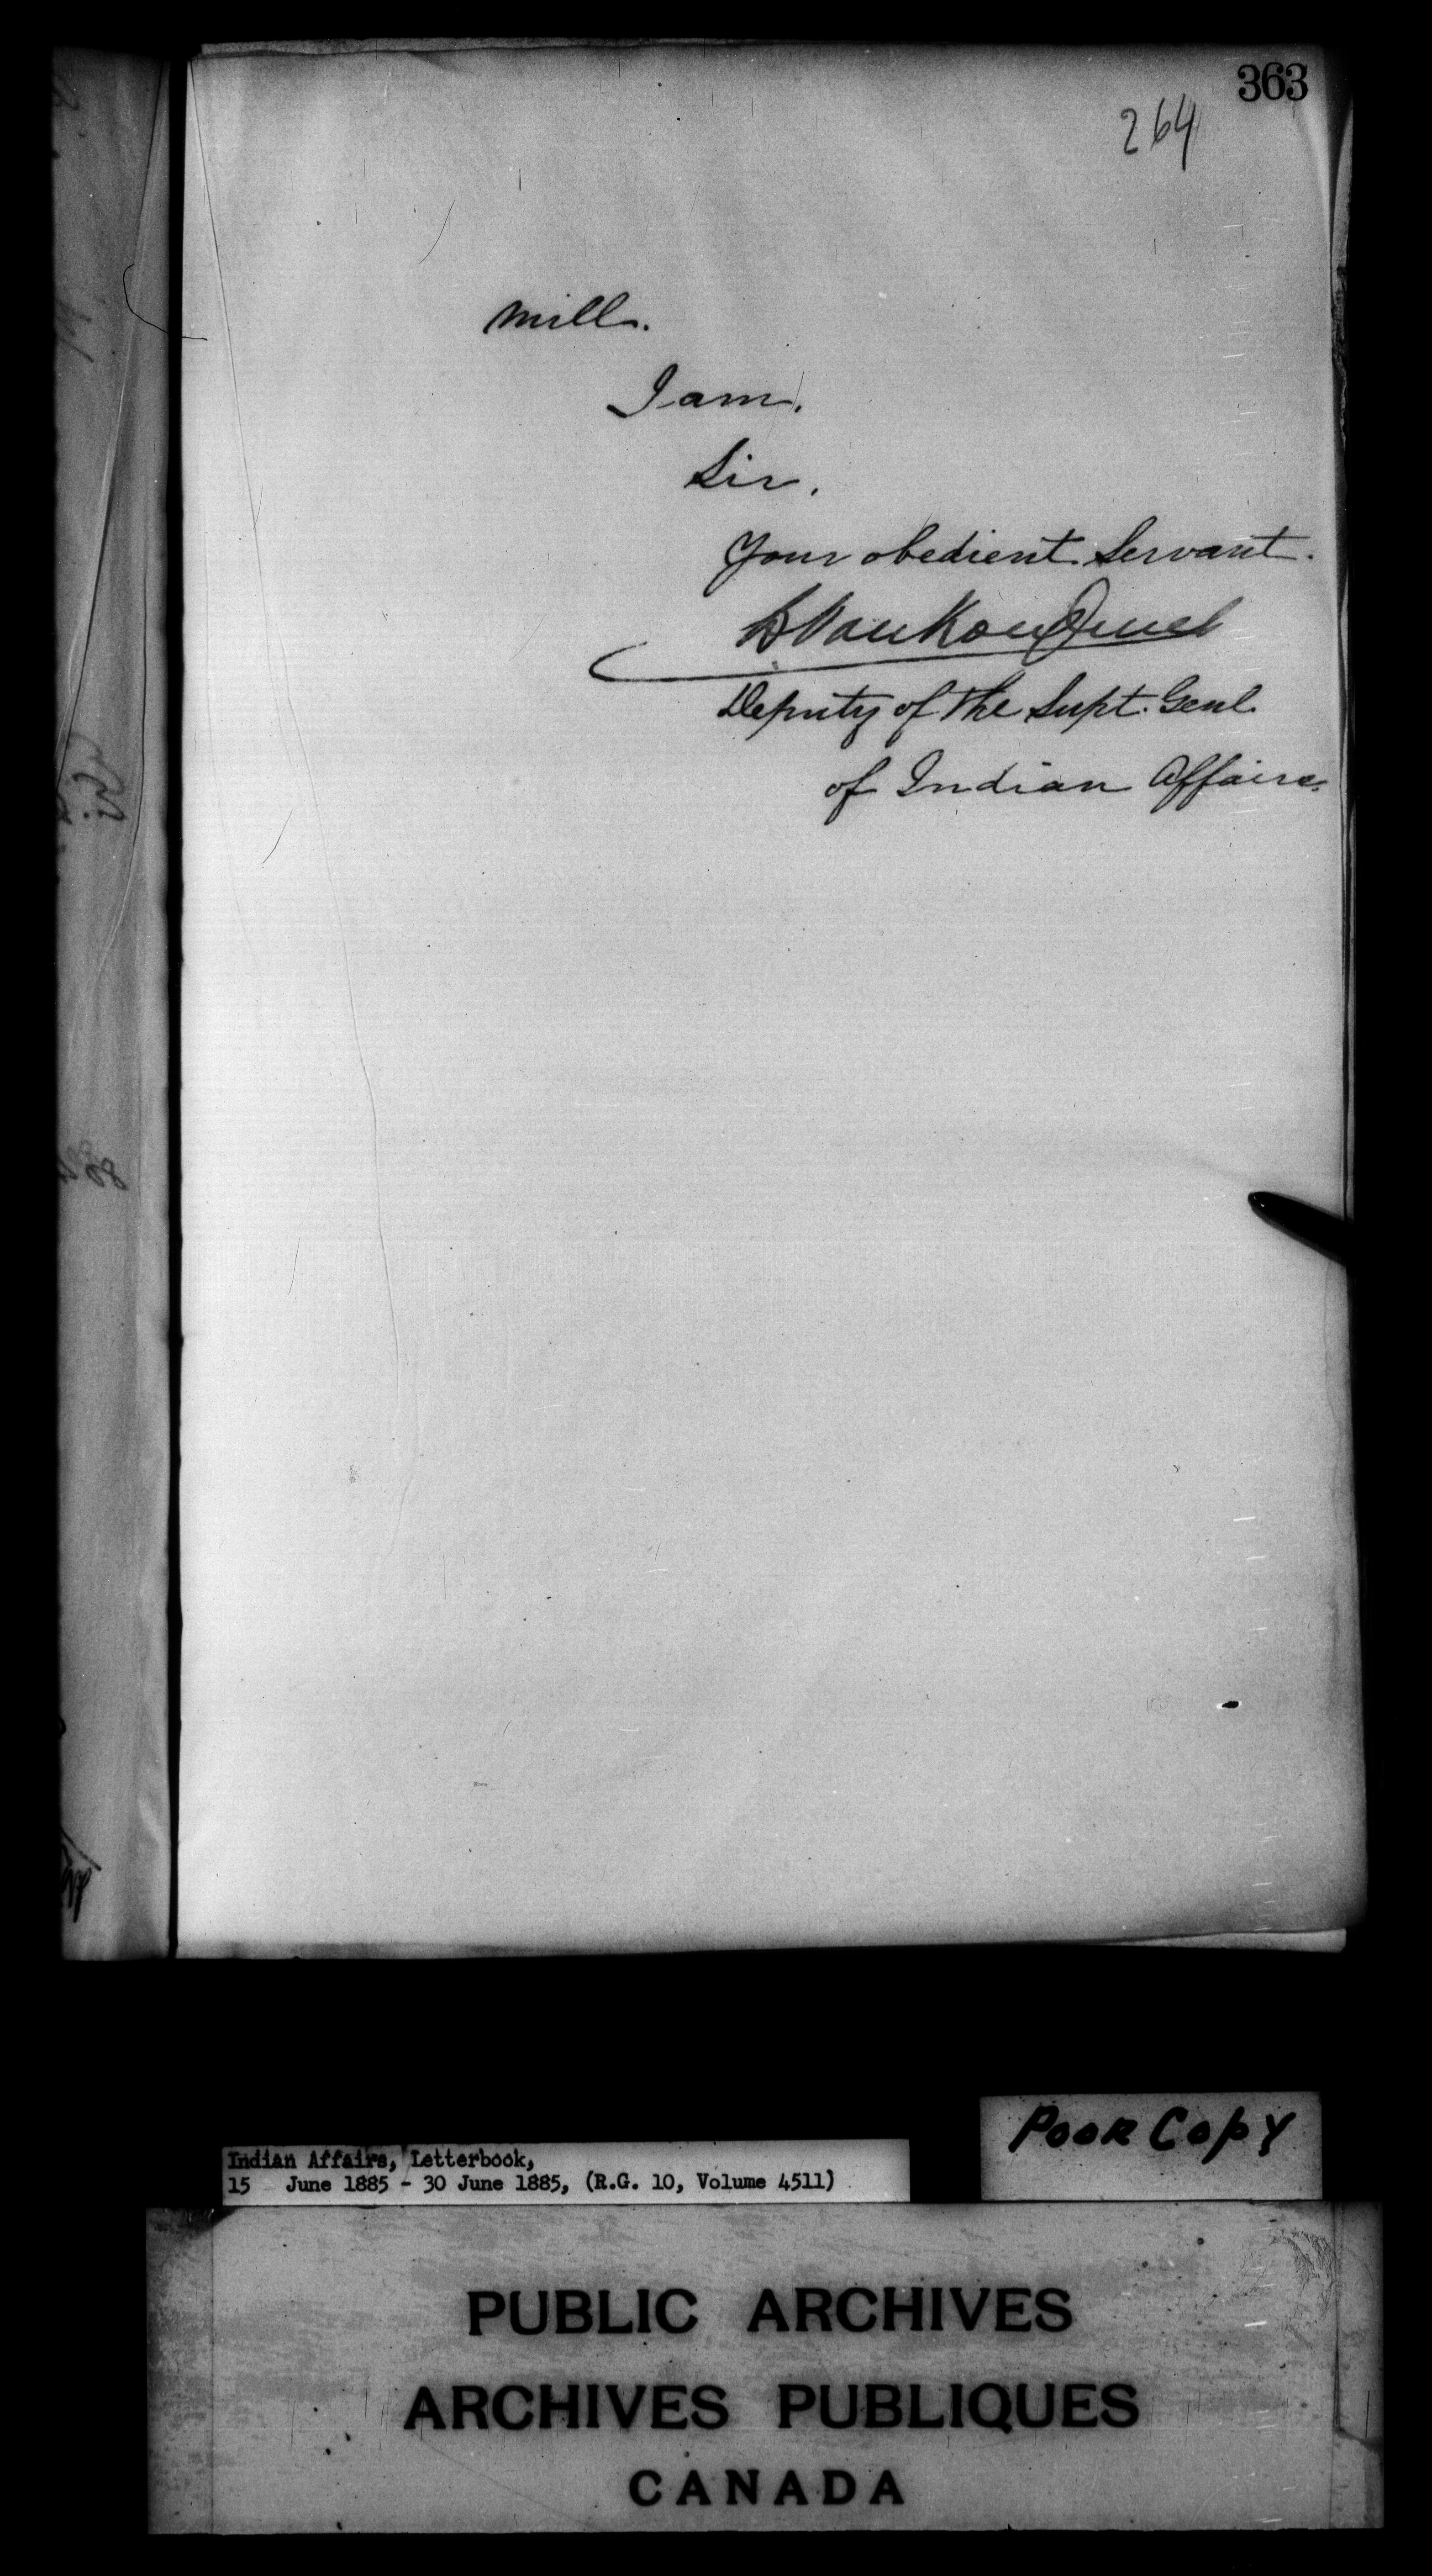 363
264
mill.
I am,
Sir,
Your obedient Servant.
L VanKoughnet
Deputy of the Supt. Genl.
of Indian Affairs.
Poor Copy
Indian Affairs, Letterbook,
15 June 1885 - 30 June 1885, (R.G. 10, Volume 4511)
PUBLIC ARCHIVES
ARCHIVES PUBLIQUES
CANADA